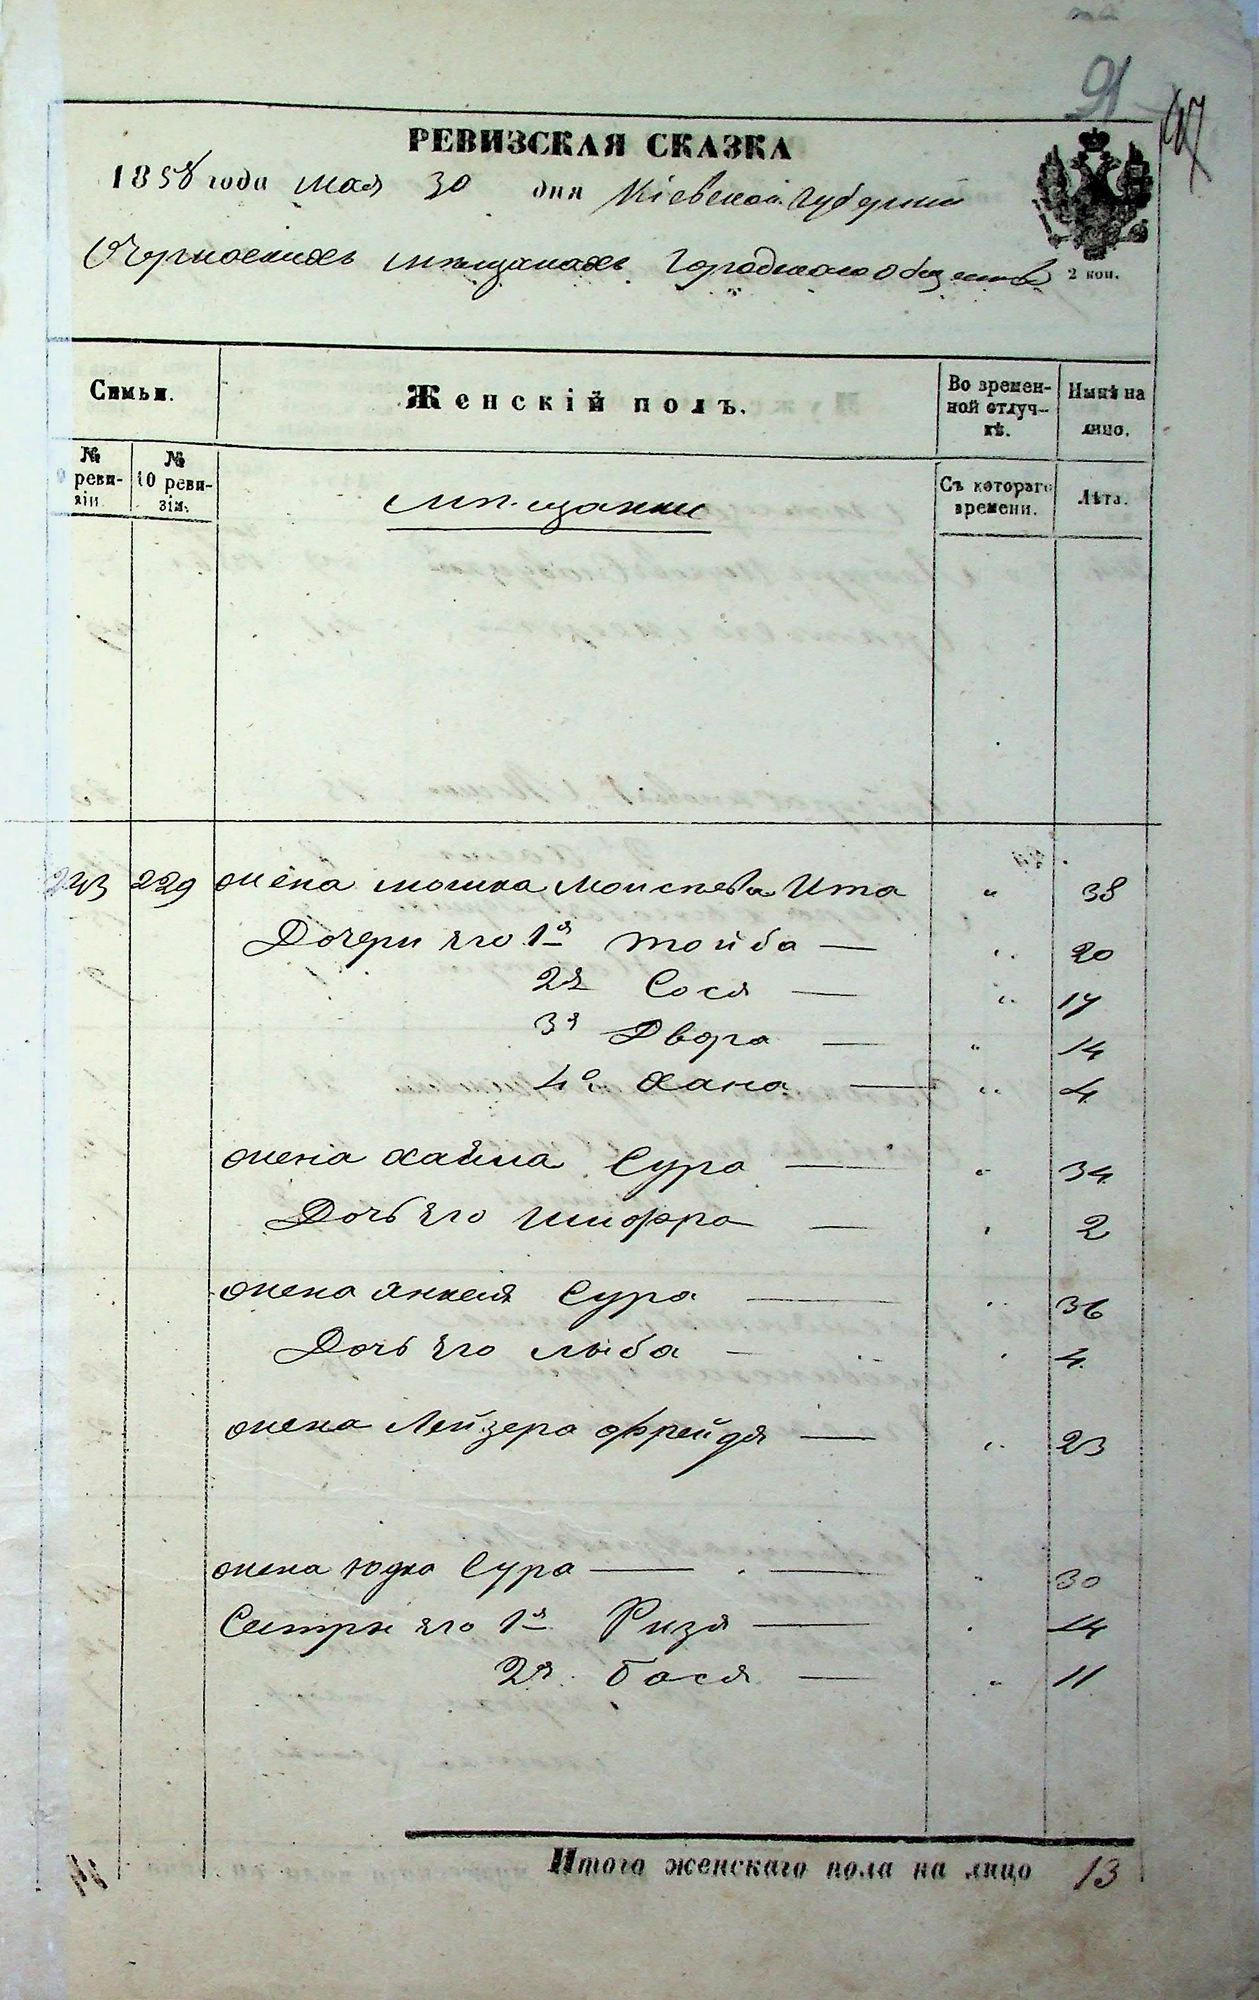 91
97
РЕВИЗСКАЯ СКАЗКА
1858 года мая 30 дня Кіевской Губерніи
мѣщанахъ Городского общества
2 коп.
Семьи.
Женскій полъ.
Во времен-
ной отлуч-
кѣ.
Нынѣ на
лицо.
№
9 реви-
зіи.
№
10 реви-
зіи.
Мѣщанки
Съ котораго
времени.
Лѣта.
243 229 жена мошка Моисѣева Ита " 38
Дочери Его 1я Тойба — " 20
2я Сося — " 17
3я Двора — " 14
4я Хана — " 4
жена Хайма Сура — " 34
Дочь Его Шифра — " 2
жена Янкеля Сура — " 36
Дочь Его лыба — " 4
жена Лейзера Фрейдя — " 23
жена Юдка Сура — " 30
Сестры Его 1я Ризя — " 14
2я Бася — " 11
Итого женскаго пола на лицо 13